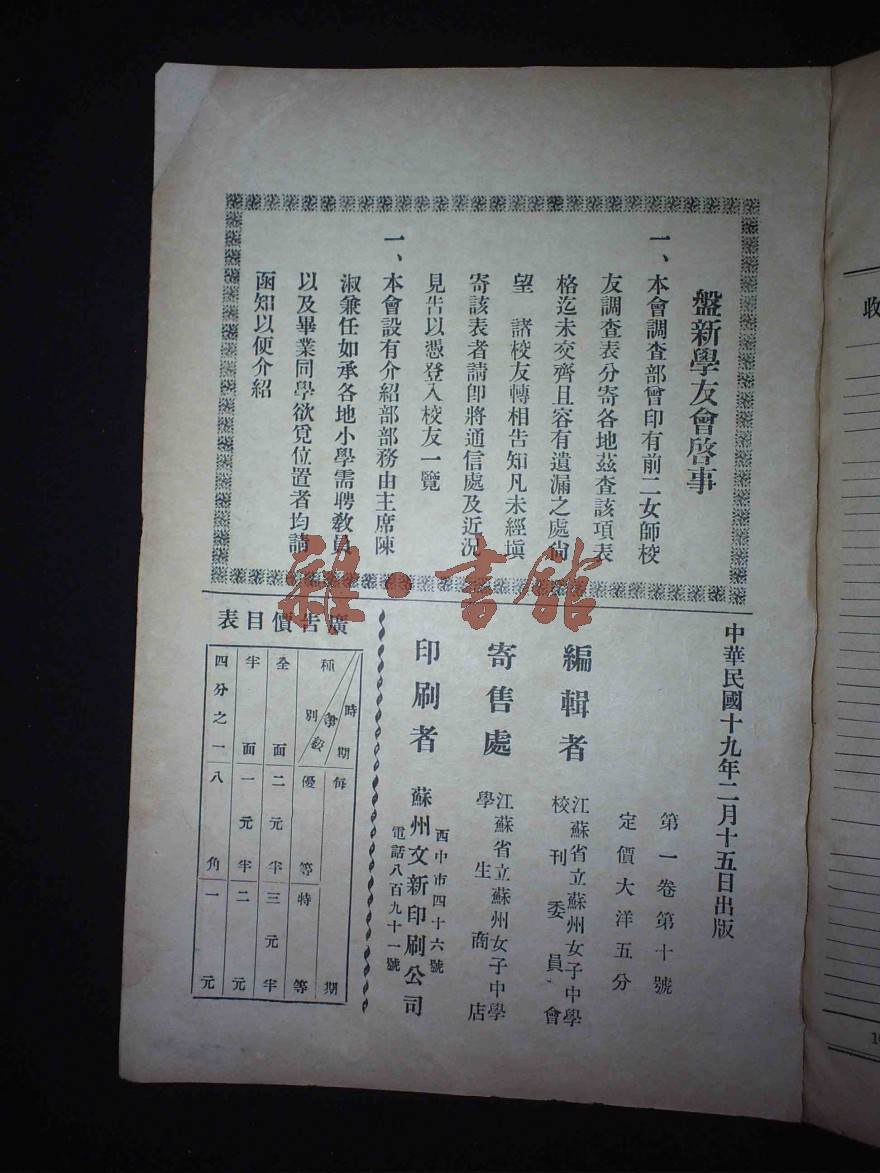 盤新學友會啓事
一、本會調查部曾印有前二女師校
友調查表分寄各地茲查該項表
格迄未交齊且容有遺漏之處尙
望 諸校友轉相告知凡未經塡
寄該表者請卽將通信處及近況
見告以憑登入校友一覽
一、本會設有介紹部部務由主席陳
淑兼任如承各地小學需聘敎員
以及畢業同學欲覓位置者均請
函知以便介紹
中華民國十九年二月十五日出版
第一卷第十號
定價大洋五分
編輯者
江蘇省立蘇州女子中學
校刊委員會
寄售處
江蘇省立蘇州女子中學
學生商店
印刷者
西中市四十六號
蘇州文新印刷公司
電話八百九十一號
廣告價目表
時期
等級
種別
每期
優等
特等
全面
二元半
三元半
半面
一元半
二元
四分之一
八角
一元
雜·書館
收